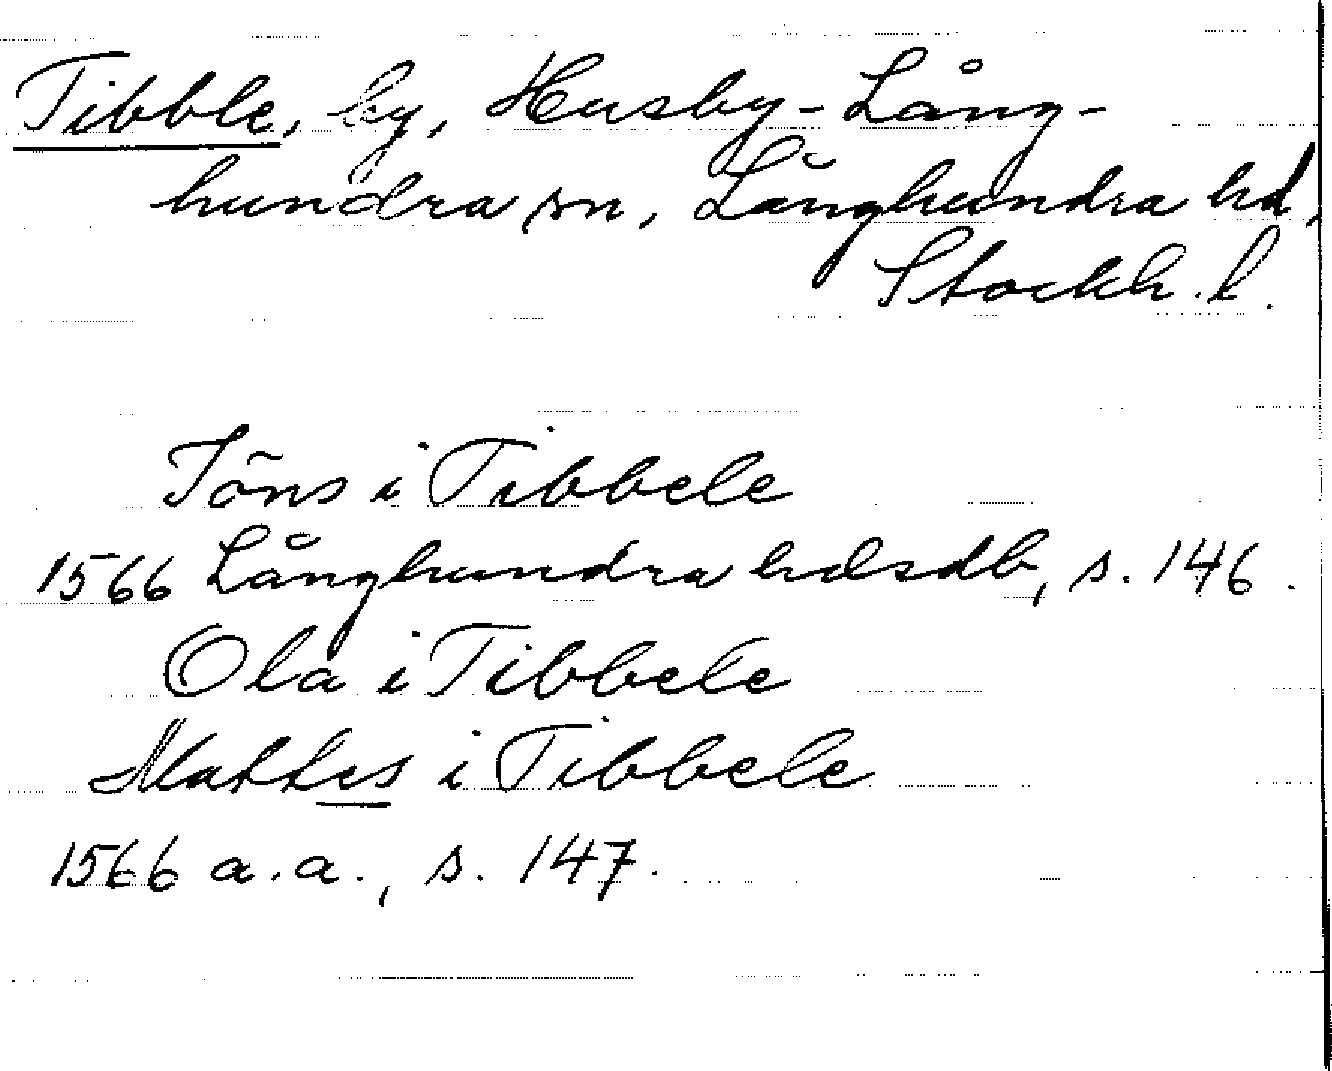 Tibble, by, Husby-Lång-
hundra sn, Långhundra hd,
Stockh. l.
Jöns i Tibbele
1566 Långhundra hdsdb, s. 146.
Ola i Tibbele
Mattes i Tibbele
1566 a.a., s. 147.